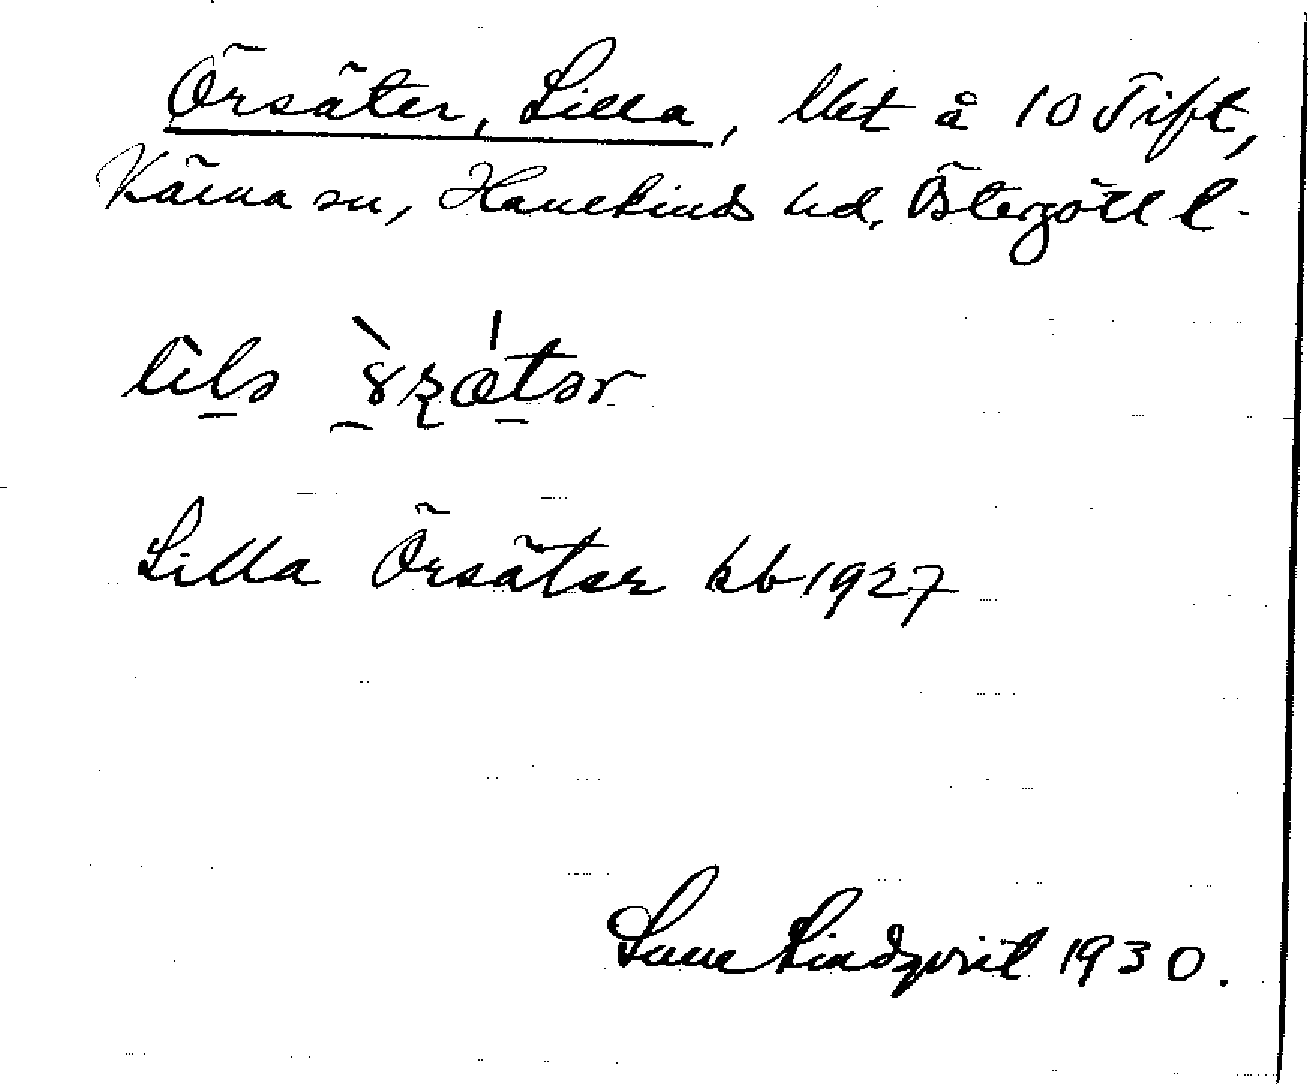 Örsäter, Lilla, lht å 10 Tift,
Kärna sn, Hanekinds hd, Östergötl l.
lila
Lilla Örsäter kb 1927
Sune Lindqvist 1930.